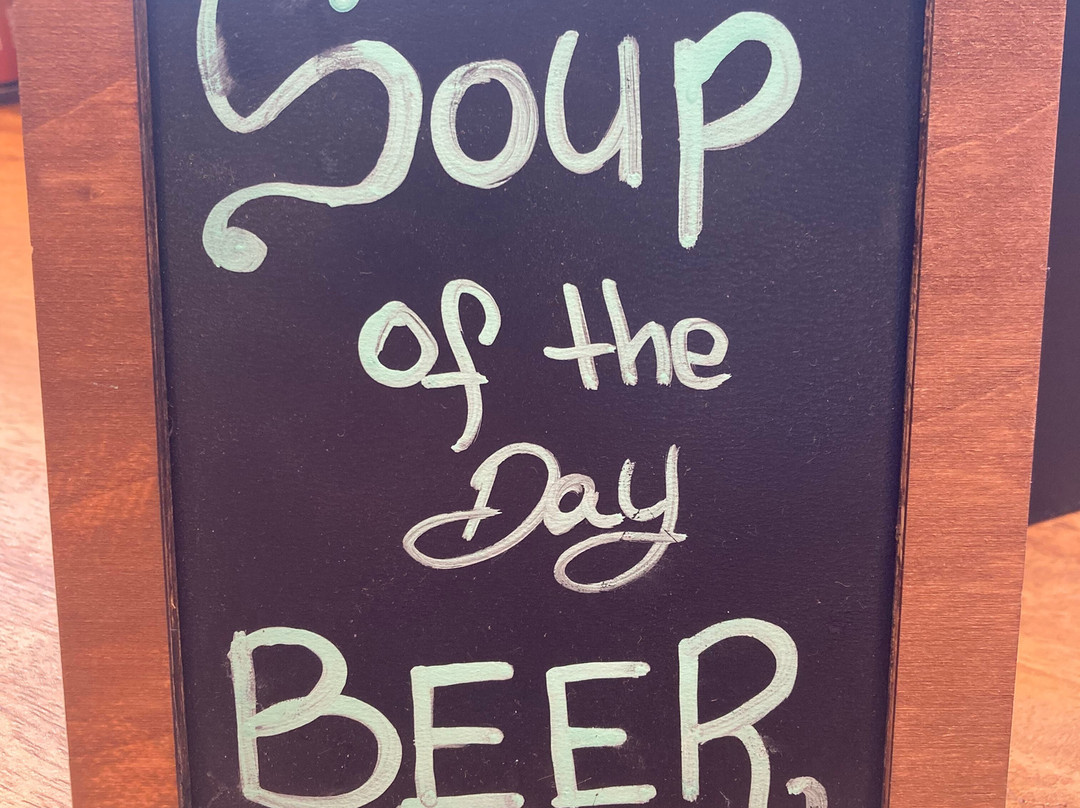 Soup
of the
Day
BEER,